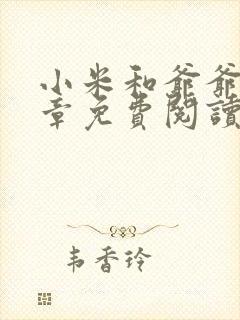 小米和爺爺
章免費閱讀
韦香玲